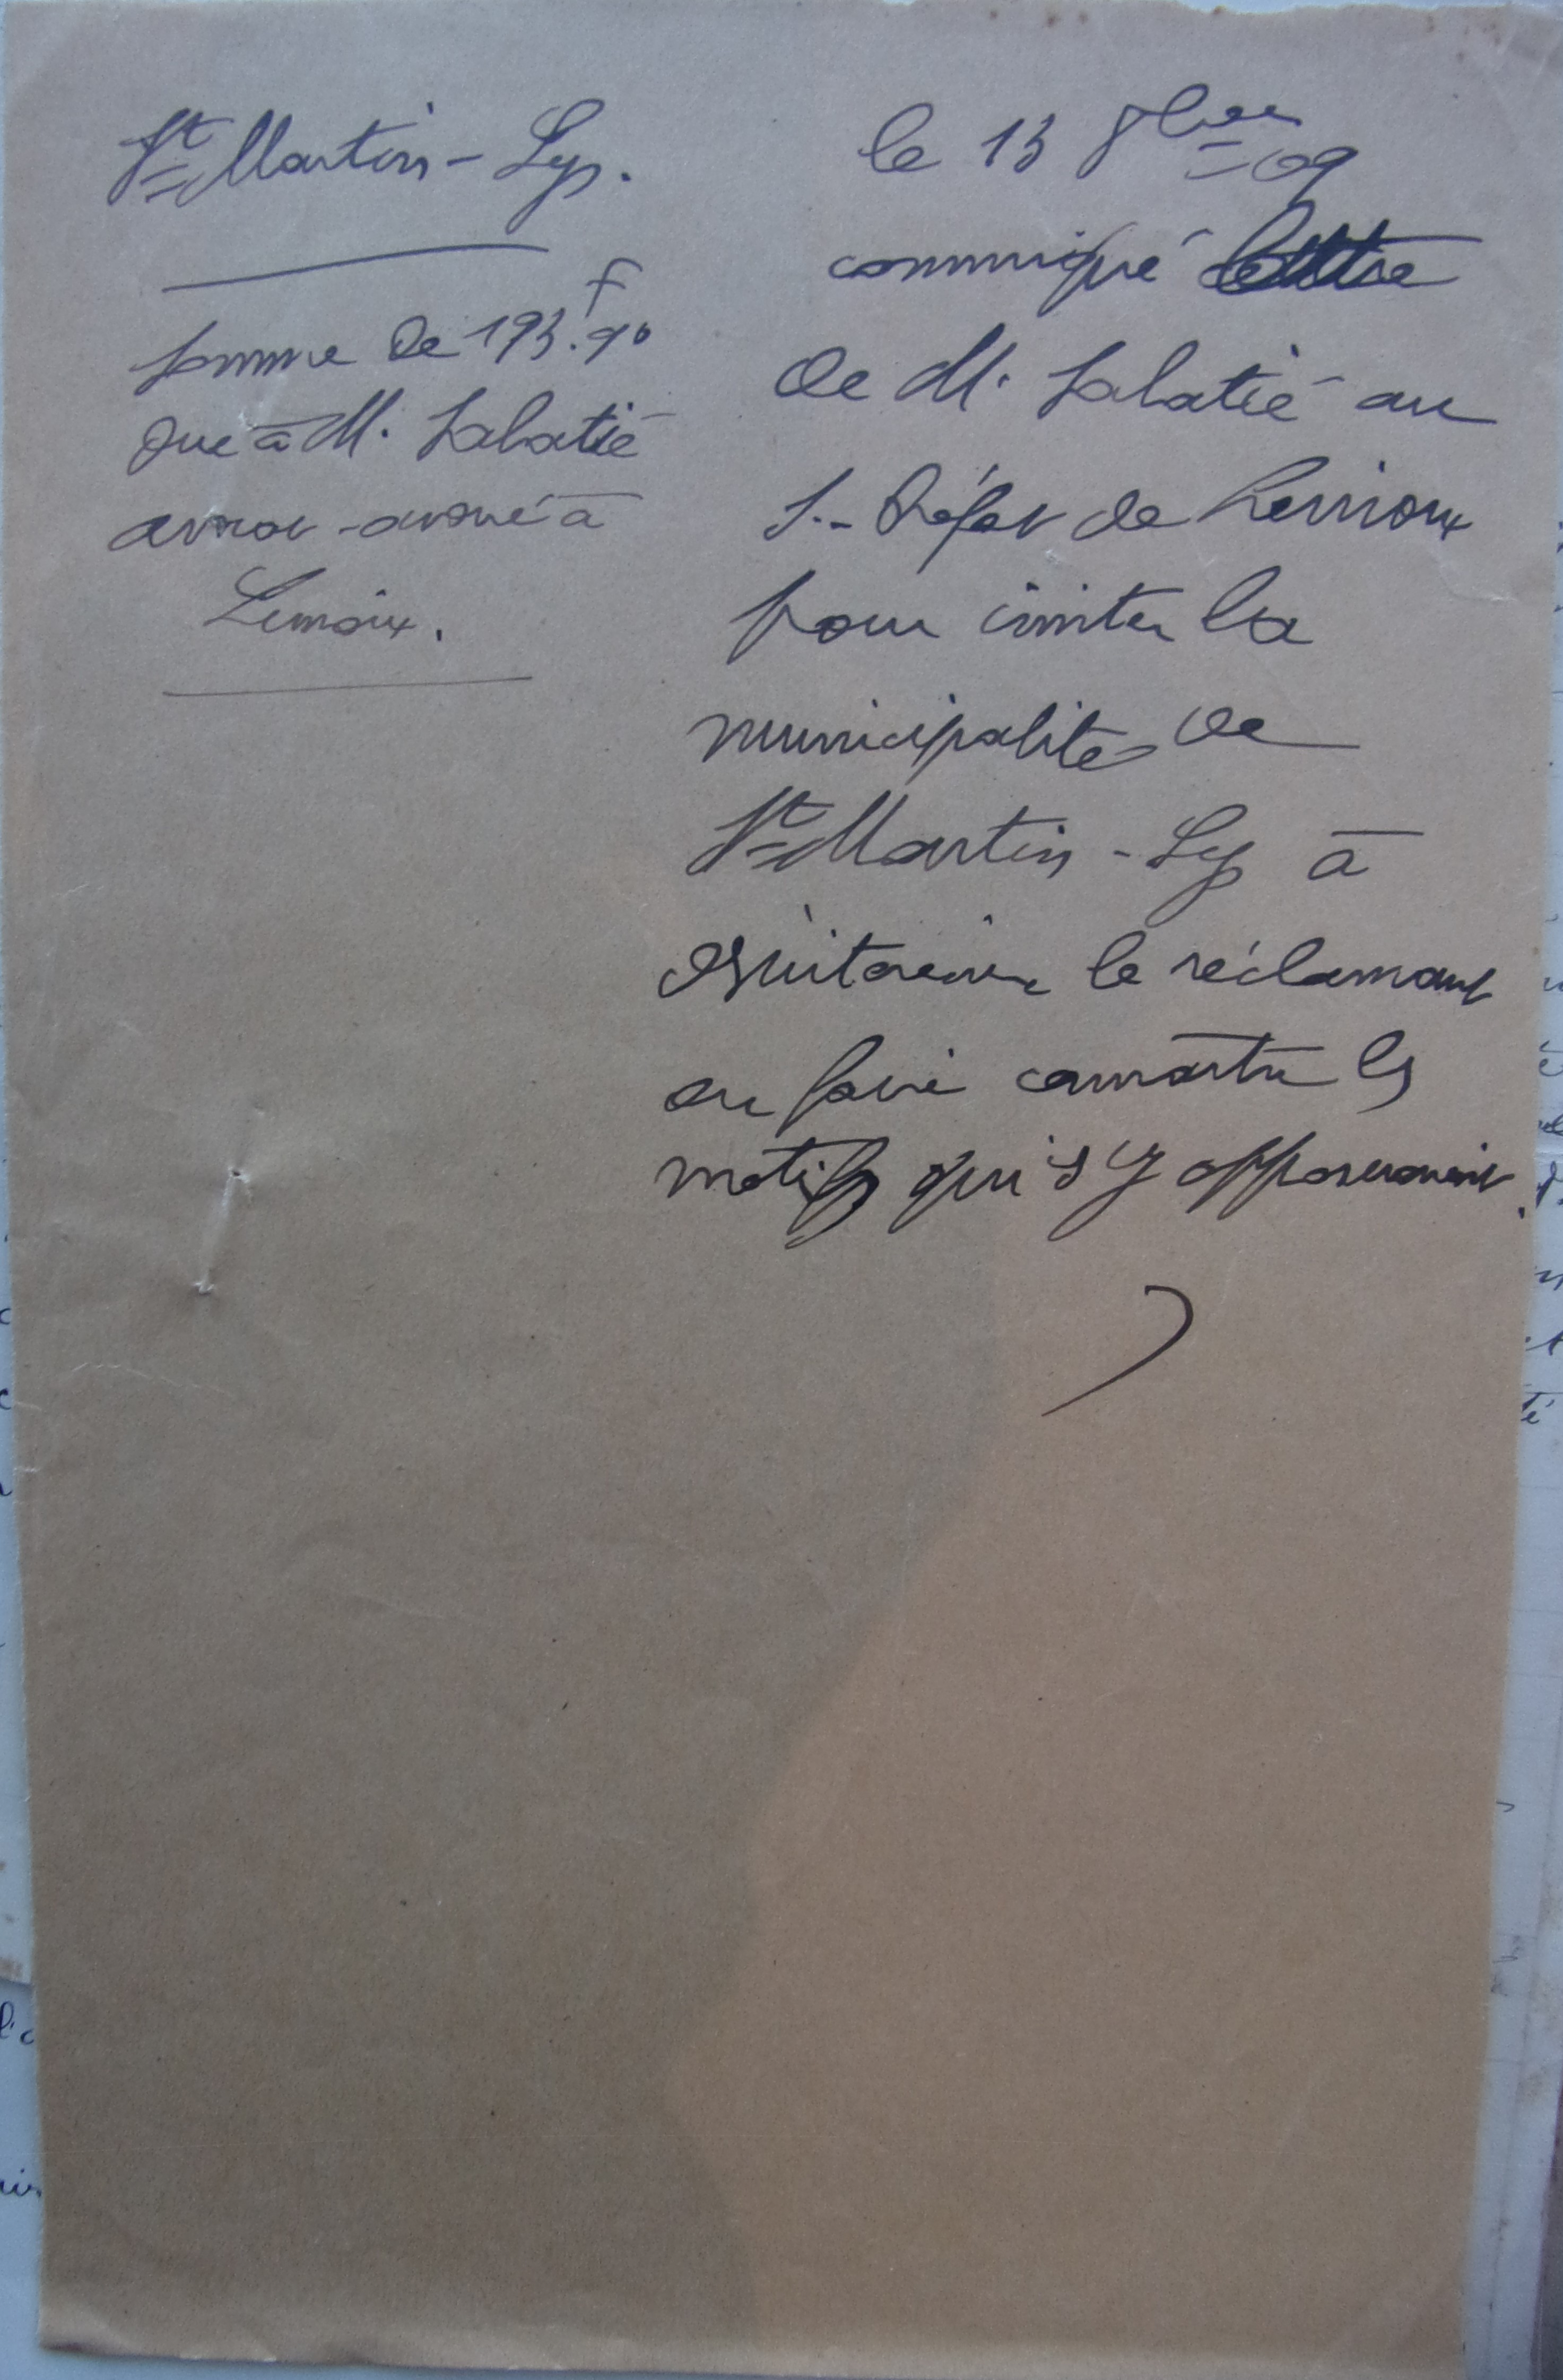 St Martin-Lys.
somme de 193f.90
due à M. Sabatié
avocat-avoué à
Limoux.
le 13 8bre 09
communiqué lettre
de M. Sabatié au
S.-Préfet de Limoux
pour inviter la
municipalité de
St Martin-Lys à
désintéresser le réclamant
ou faire connaître les
motifs qui s'y opposeraient.